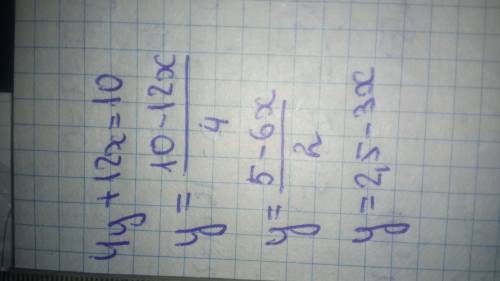 4y + 12x = 10
y = \frac{10 - 12x}{4}
y = \frac{5 - 6x}{2}
y = 2,5 - 3x